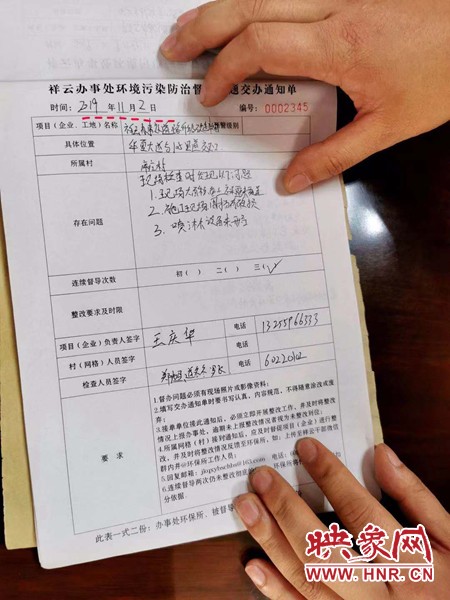 祥云办事处环境污染防治督 题交办通知单
时间: 2019 年 11 月 2 日 编号: 0002345
项目(企业、工地)名称 预警级别
具体位置
所属村
存在问题
现场检查时发现以下问题
1.现场大
2.施工现场围挡破损
3.喷淋设备未开
连续督导次数 初( ) 二( ) 三(✓)
整改要求及时限
项目(企业)负责人签字 王庆华 电话 13255966333
村(网格)人员签字 电话
检查人员签字 电话 60220102
要 求
1.督办问题必须有现场照片或影像资料;
2.填写交办通知单时要书写认真,内容规范,不得随意涂改废
弃;
3.接单单位接此通知后,必须立即开展整改工作,并及时将整改
情况上报办事处,逾期未上报整改情况者视为未整改到位;
4.所属网格(村)接到通知后,应及时督促项目(企业)进行整
改,并及时将整改情况反馈至环保所,如:上传至祥云干部微信
群内并@环保所工作人员;
5.回复邮箱: 电话:
6.连续督导两次仍未整改彻底的 环保所将
分依据.
此表一式二份:办事处环保所、被督导
映象网
WWW.HNR.CN